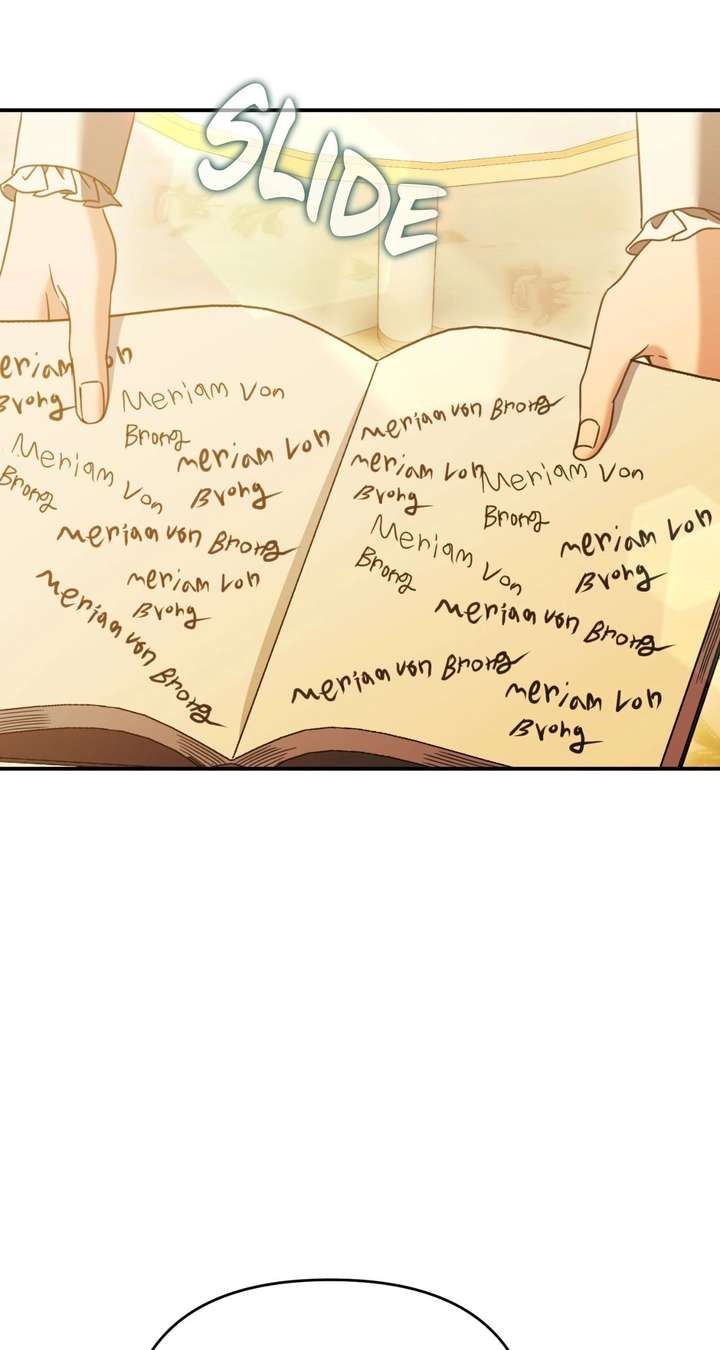 SLIDE
eriam on
Brong
Meriam Von
Brong
Meriam Von
Brong
meriam Von
Brong
meriam von Brong
meriam Von
Brong
meriam von Brong
meriam von Brong
meriam Von
Brong
Meriam Von
Brong
Meriam Von
Brong
meriam Von
Brong
meriam von Brong
meriam von Brong
meriam Von
Brong